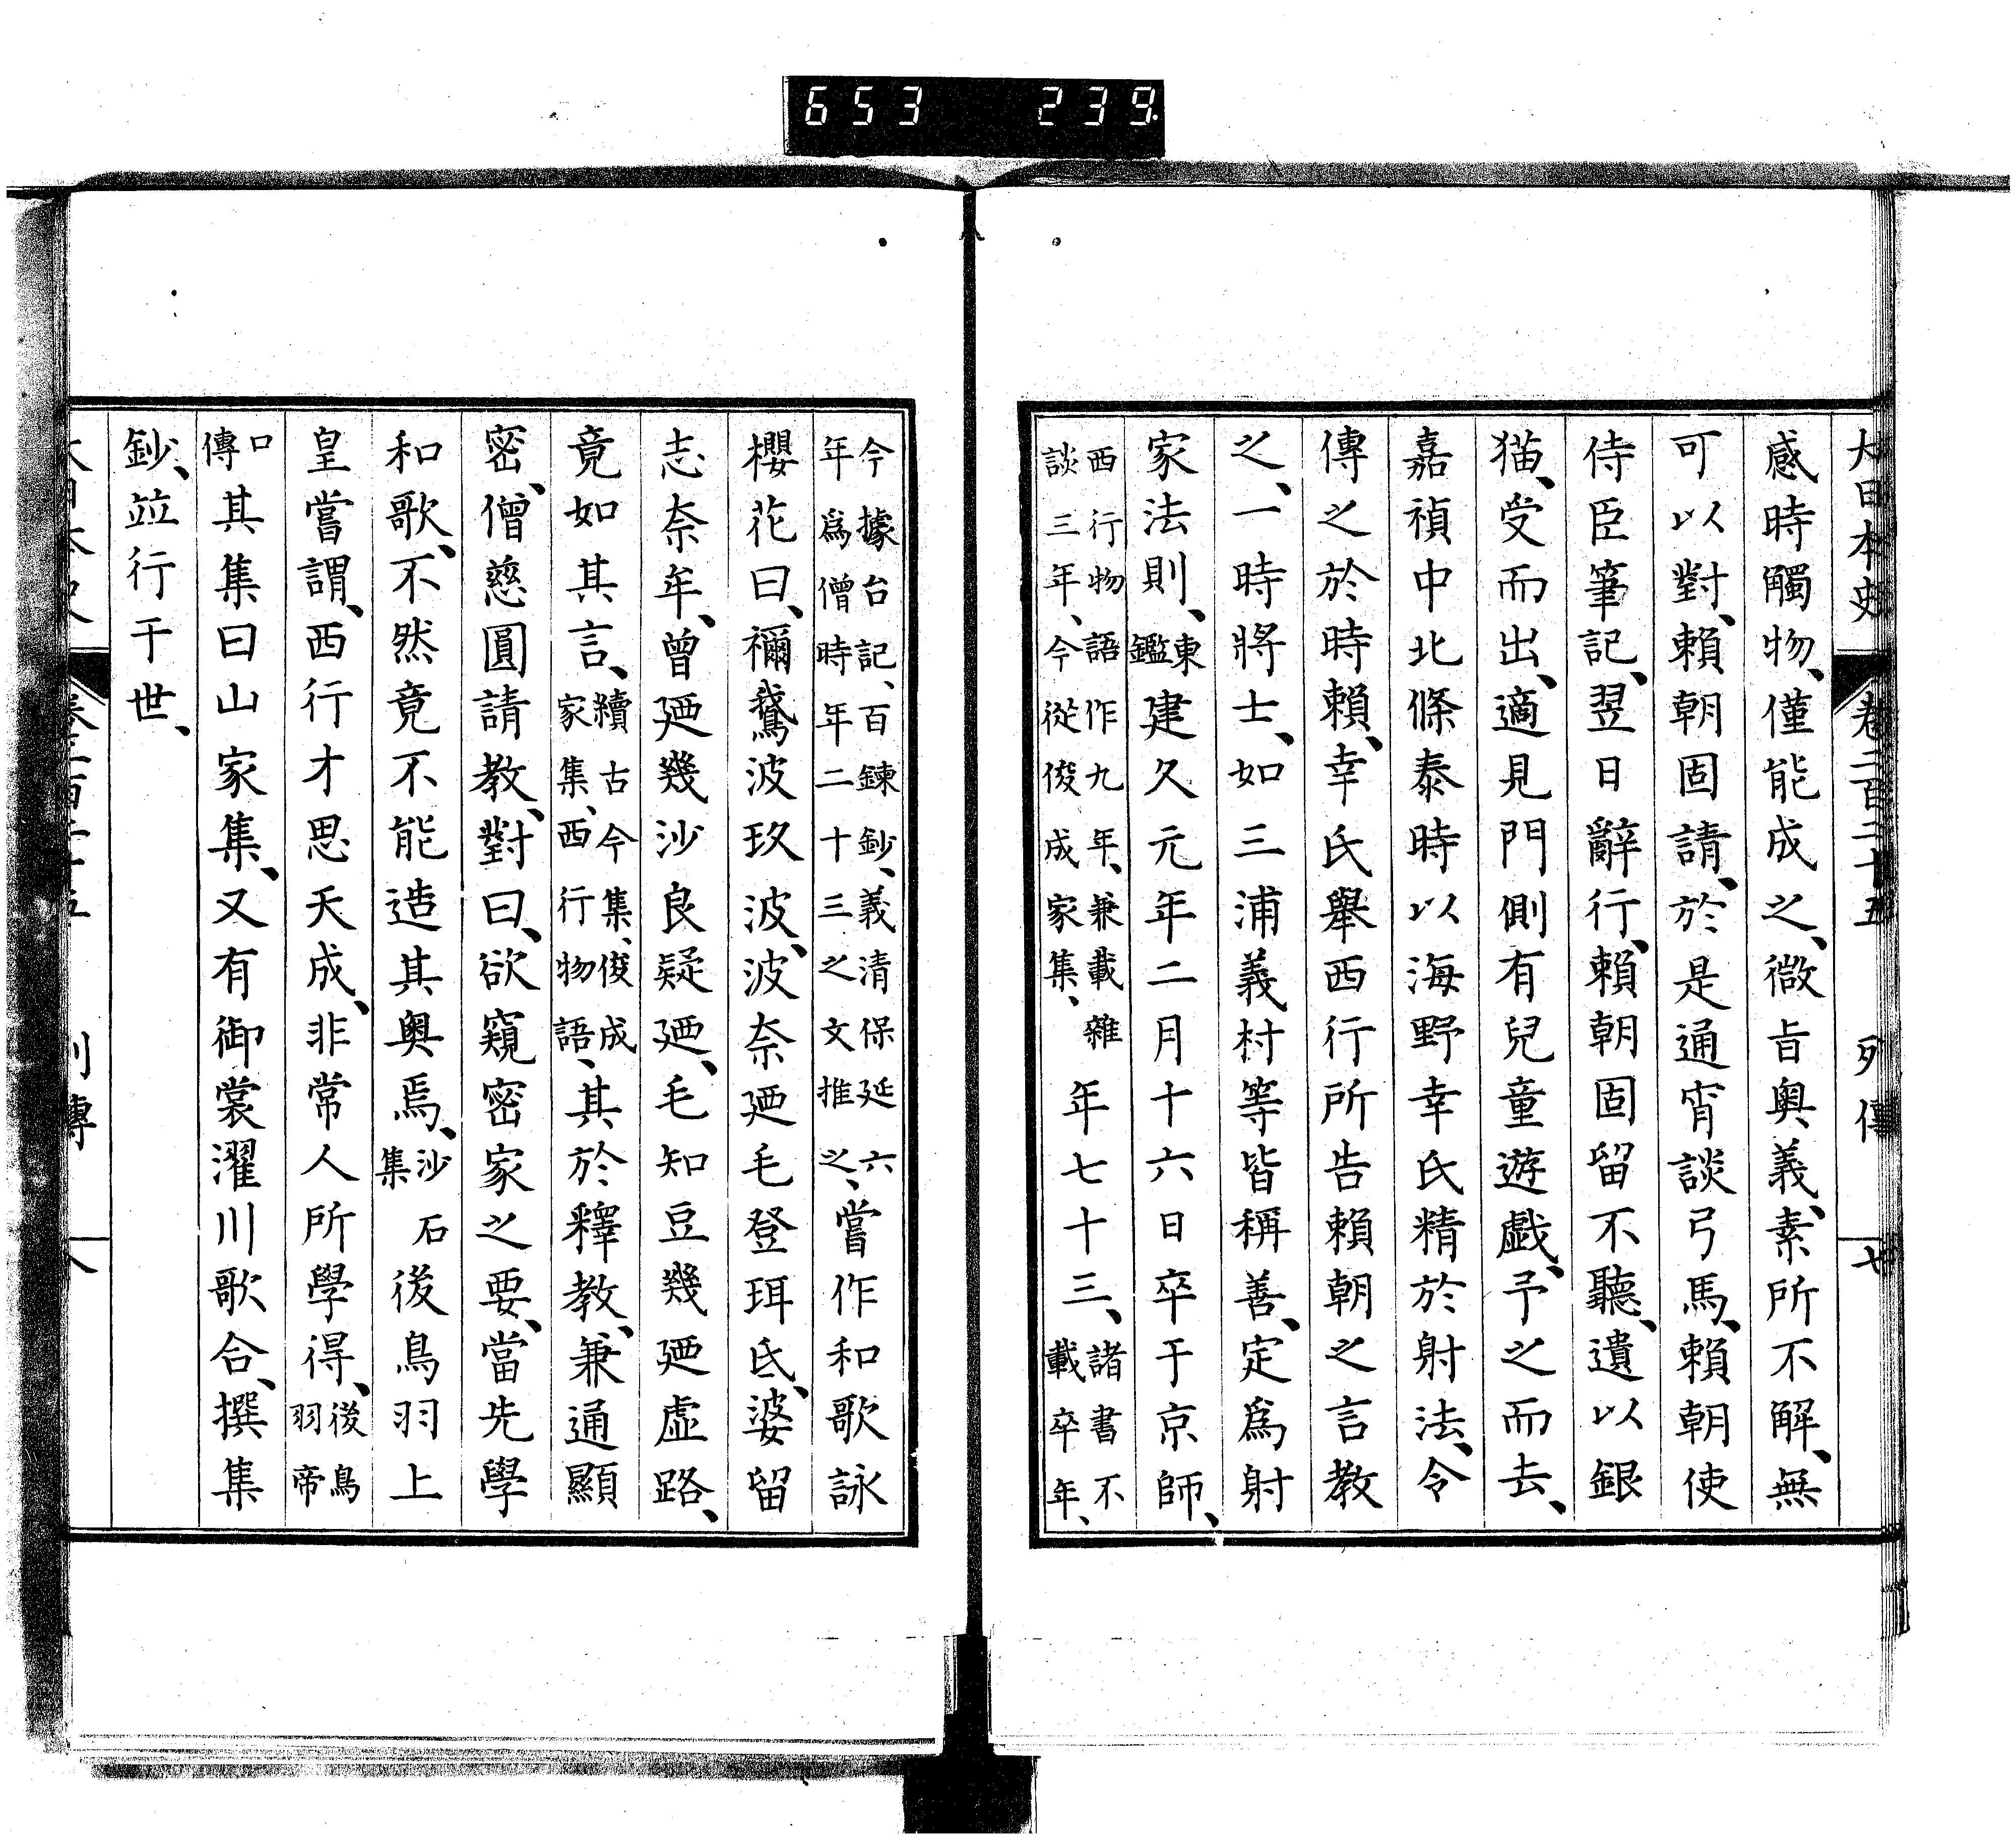 653 239
大日本史 卷二百二十五 列傳 七
感時觸物、僅能成之、微旨奧義、素所不解、無
可以對、賴朝固請、於是通宵談弓馬、賴朝使
侍臣筆記、翌日辭行、賴朝固留不聽、遺以銀
猫、受而出、適見門側有兒童遊戯、予之而去、
嘉禎中北條泰時以海野幸氏精於射法、令
傳之於時賴、幸氏舉西行所告賴朝之言教
之、一時將士、如三浦義村等皆稱善、定爲射
家法則、東鑑建久元年二月十六日卒于京師、
西行物語作九年、兼載雜談三年、今從俊成家集、年七十三、諸書不載卒年、
今據台記、百鍊鈔、義清保延六年爲僧時年二十三之文推之、嘗作和歌詠
櫻花曰、禰鵞波玖波、波奈廼毛登珥氐、婆留
志奈牟、曾廼幾沙良疑廼、毛知豆幾廼虛路、
竟如其言、續古今集、俊成家集、西行物語、其於釋教、兼通顯
密、僧慈圓請教、對曰、欲窺密家之要、當先學
和歌、不然竟不能造其奧焉、沙石集後鳥羽上
皇嘗謂、西行才思天成、非常人所學得、後鳥羽帝
口傳其集曰山家集、又有御裳濯川歌合、撰集
鈔、竝行于世、